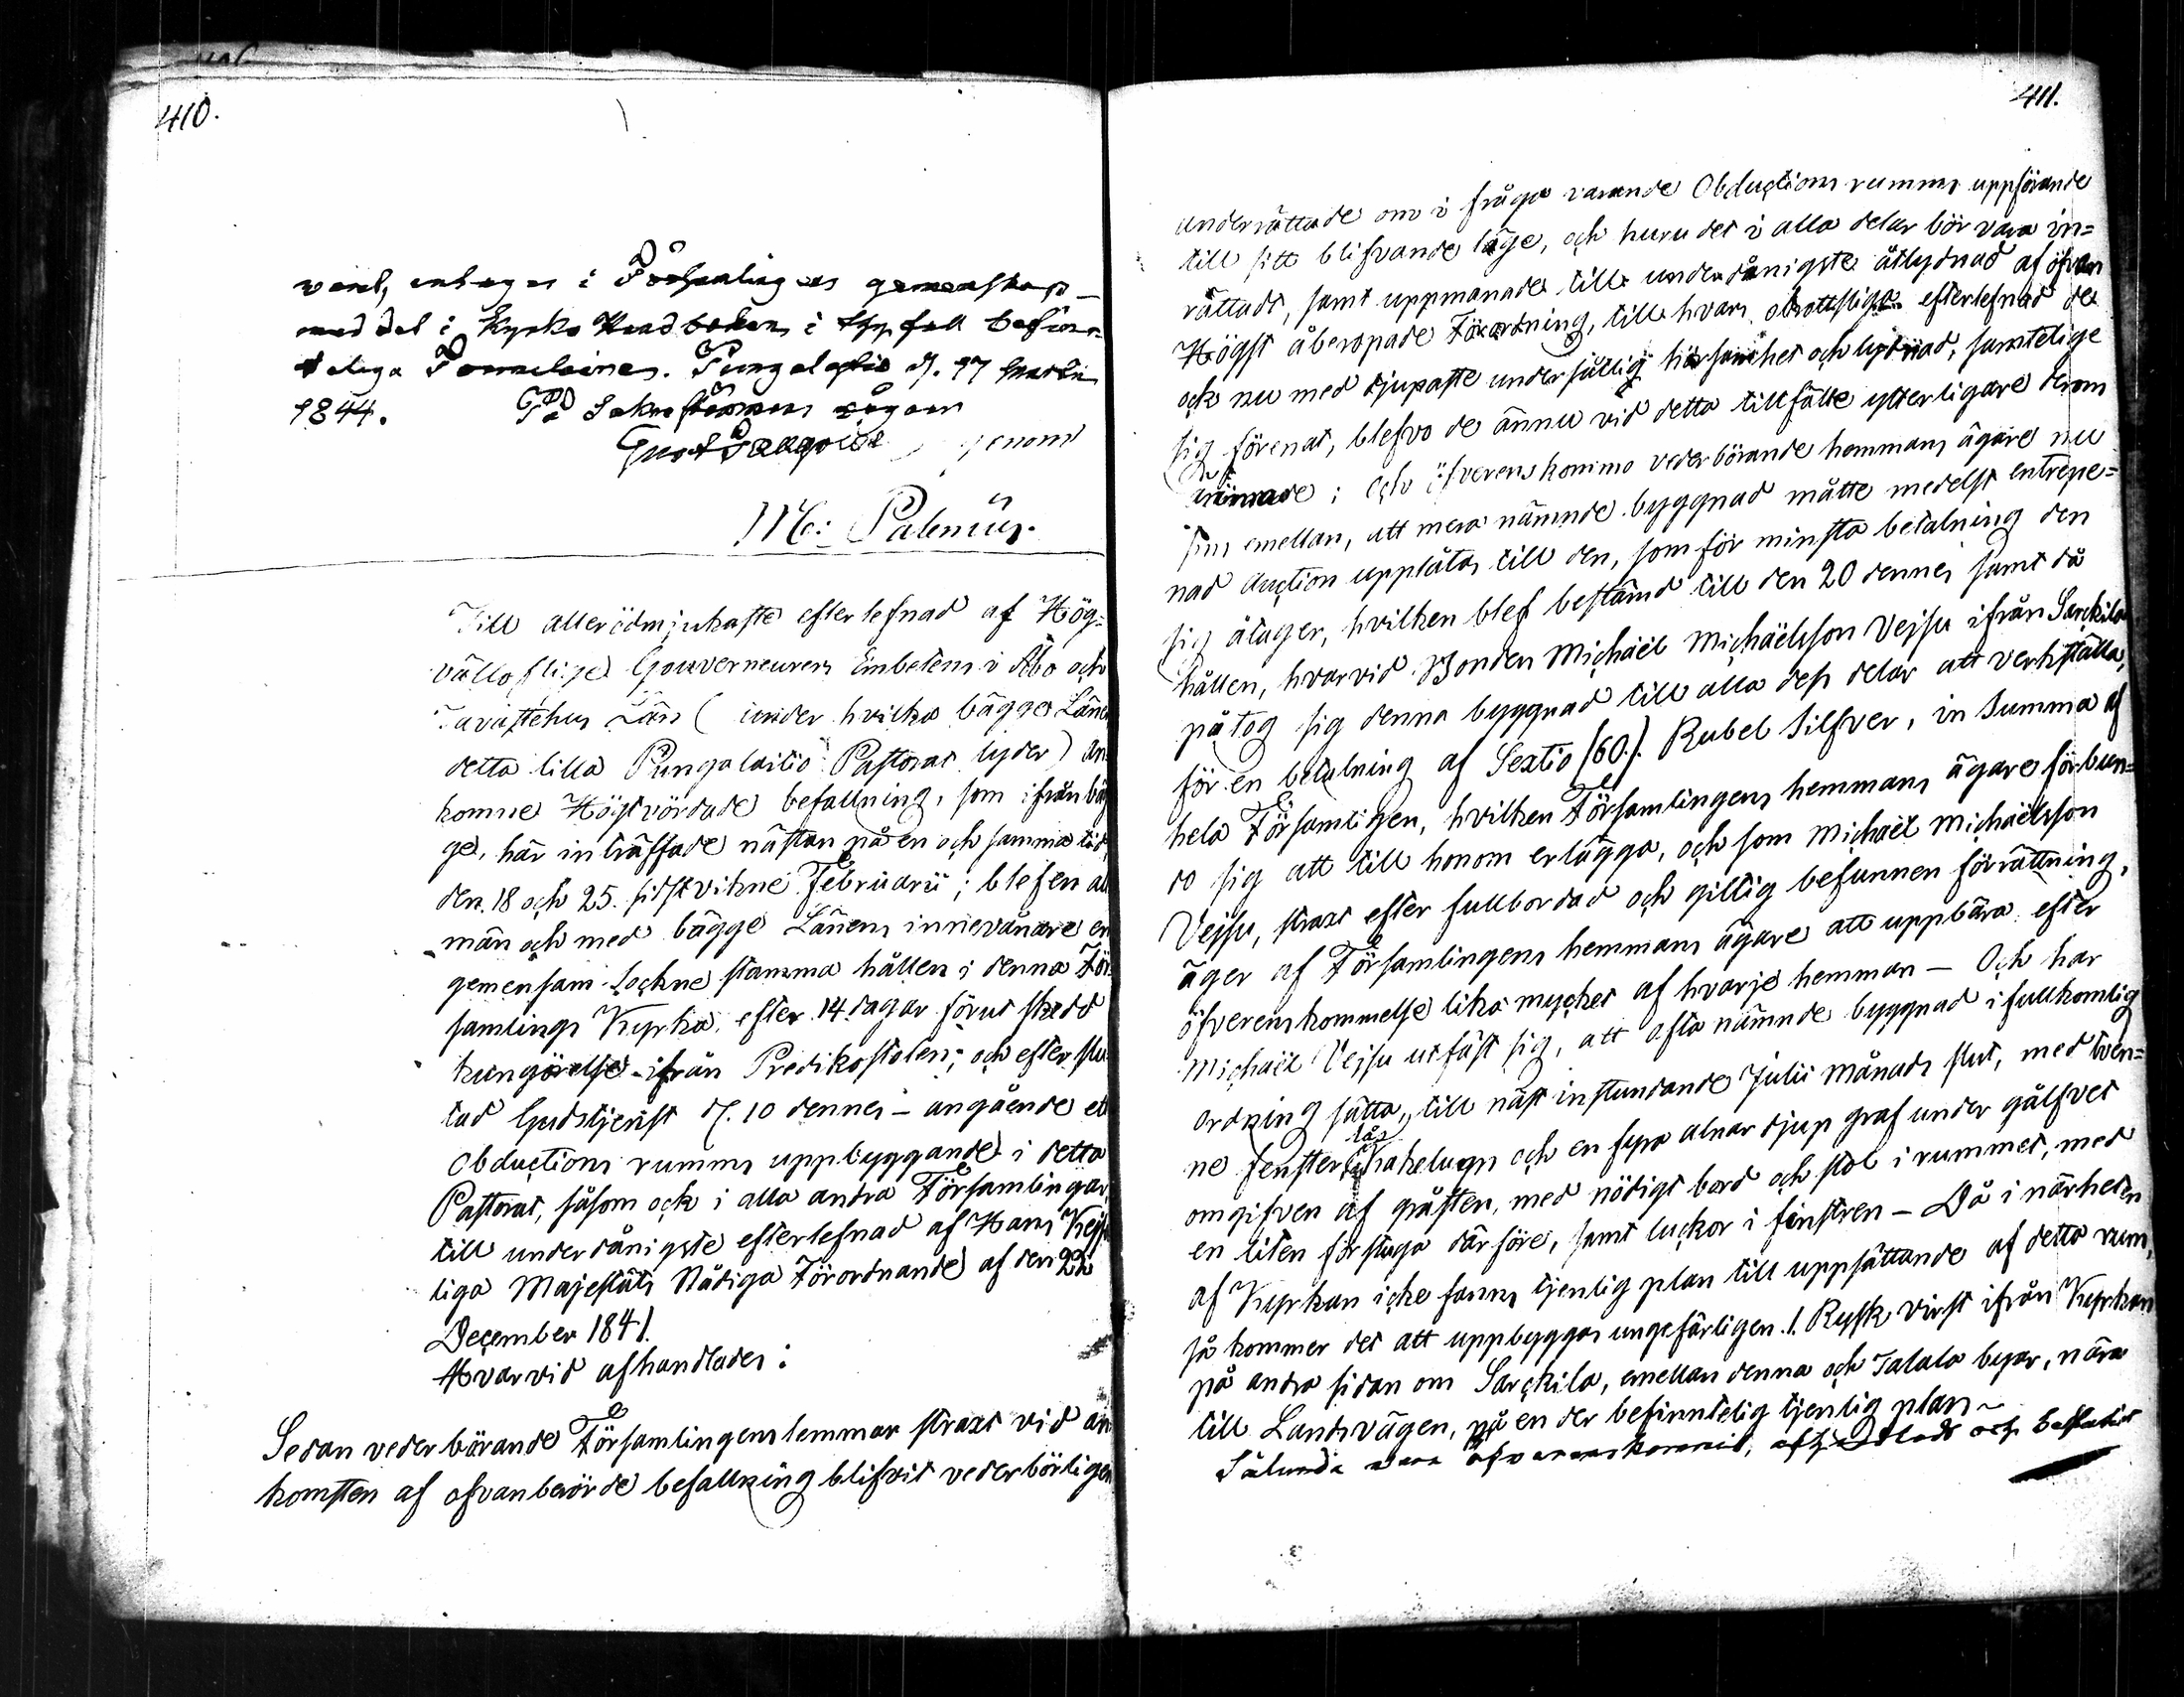 410.
vand, antages i Församlingens gemenskap
med del i Kyrko Handboken i ty fall befin-
telige Formulairer. Pungalaitio d. 17 Martii
1844. På Sakristians vägnar
Gust genom
M: Palenius.
Till allerödmjukaste efterlefnad af Hög-
vällofliga Gouverneurens Embetens i Åbo och
Tavastehus Län (under hvilka bägge Länen
detta lilla Pungalaitio Pastorat lyder) an-
komne Högtvördade befallning, som ifrån bäg
ge, här inträffade nästan på en och samma tid,
den 18 och 25. sidstvikne Februarii; blef en all
män och med bägge Länens innevånare en
gemensam Sockne stamma hållen i denna För
samlings Kyrka, efter 14 dagar förut skedd
kungörelse ifrån Predikostolen; och efter slu
tad Gudstjenst d. 10 dennes – angående et
Obductions rumms uppbyggande i detta
Pastorat, såsom ock i alla andra Församlingar,
till underdånigste efterlefnad af Hans Kejser
liga Majestäts Nådiga Förordnande af den 22
December 1841.
Hvarvid afhandlades:
Sedan vederbörande Församlingens lemmar straxt vid an
komsten af ofvanberörde befallning blifvit vederbörligen
411.
underrättade om i fråga varande Obductions rumms uppförande
till sitt blifvande läge, och huru det i alla delar bör vara in-
rättadt, samt uppmanade till underdånigste åtlydnad af ofvan
Högst åberopade Förordning, till hvars obrottsliga efterlefnad de
ock nu med djupaste undersåtlig hörsamhet och lydnad, samtelige
sig förenat, blefvo de ännu vid detta tillfälle ytterligare derom
; och öfverenskommo vederbörande hemmans ägare nu
sins emellan, att mera nämnde byggnad måtte medelst entrepe-
nad Auction upplåtas till den, som för minsta betalning den
sig åtager, hvilken blef bestämd till den 20 dennes samt då
hållen, hvarvid Bonden Michaël Michaëlsson Vejsu ifrån Sarckila
påtog sig denna byggnad till alla dess delar att verkställa,
för en betalning af Sextio (60.) Rubel Silfver, in Summa af
hela Församligen, hvilken Församlingens hemmans ägare förbun-
do sig att till honom erlägga, och som Michaël Michaëlsson
Vejsu, straxt efter fullbordad och gilltig befunnen förrättning,
äger af Församlingens hemmans ägare att uppbära efter
öfverenskommelse lika mycket af hvarje hemman – Och har
Michaël Vejsu utfäst sig, att ofta nämnde byggnad i fullkomlig
ordning sätta, till näst instundande Julii månads slut, med tven-
ne fenster, lås kakelugn och en fyra alnar djup graf under gålfvet
omgifven af gråsten, med nödigt bord och stol i rummet, med
en liten förstuga därföre, samt luckor i finstren – Då i närheten
af Kyrkan icke fanns tjenlig plan till uppsättande af detta rum,
så kommer det att uppbyggas ungefärligen 1. Rysk virst ifrån Kyrkan
på andra sidan om Sarckila, emellan denna och Talala byar, nära
till Landsvägen, på en der befinntelig tjenlig plan –
Sålunda vara öfverenskommit, afhandladt och beslutit